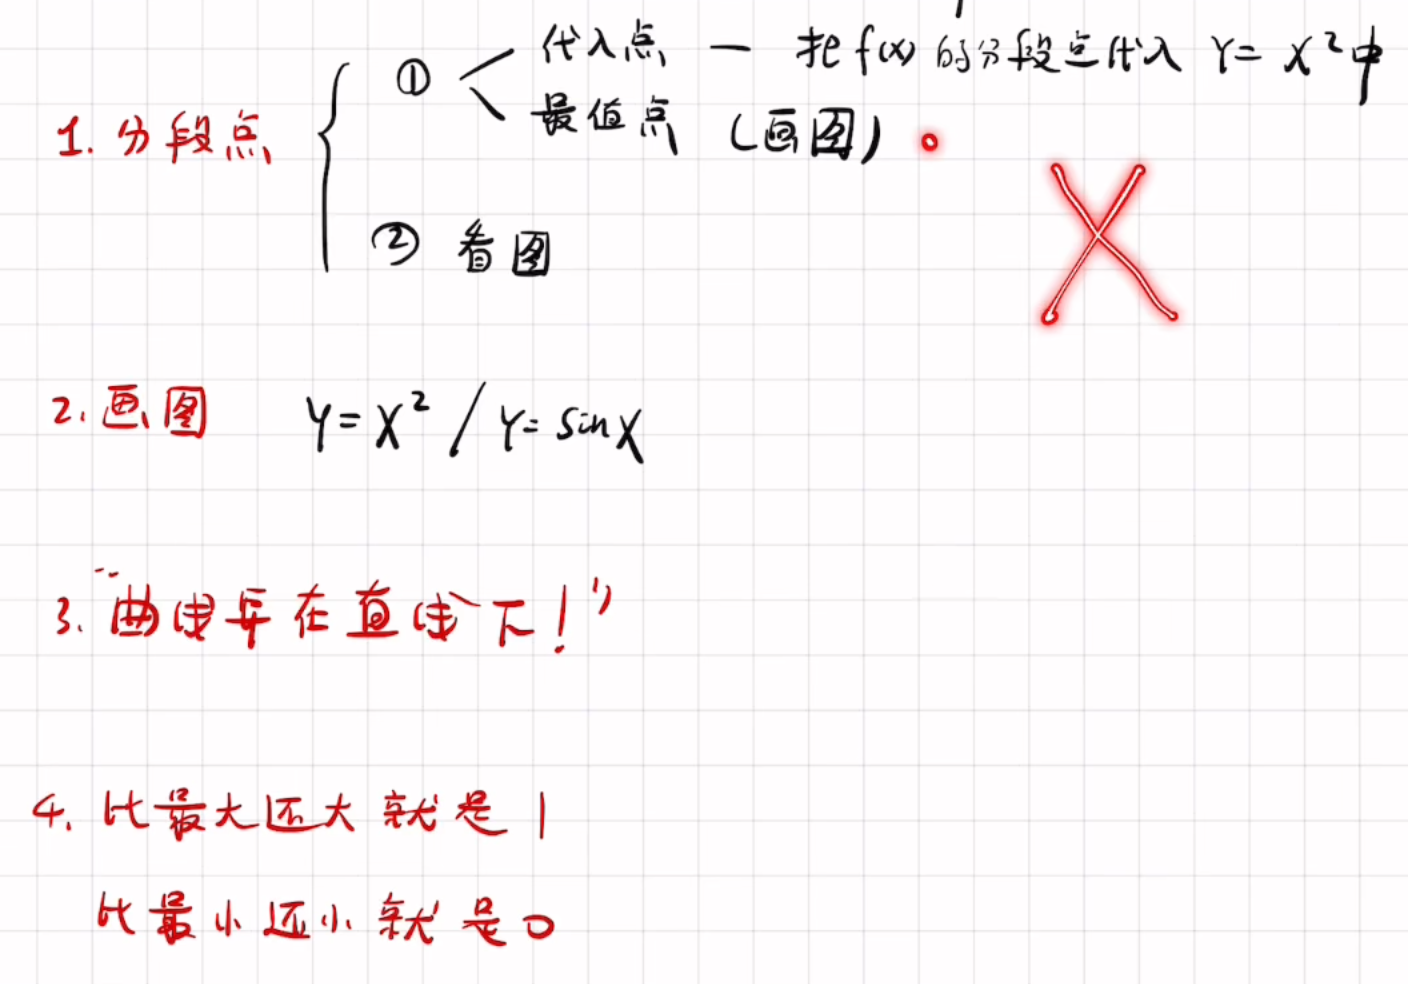 ① 代入点 — 把f(x)的分段点代入 Y=X²中
1. 分段点
最值点 (画图)
② 看图
2. 画图 Y=X² / Y=sinX
3. "曲线要在直线下!"
4. 比最大还大就是1
比最小还小就是0